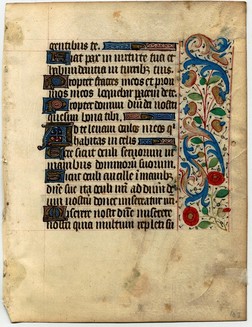 gentibus te.
Fiat pax in virtute tua et
habundantia in turribus tuis.
Propter fratres meos et proxi
mos meos loquebar pacem de te.
Propter domum dñi dei nostri
quesivi bona tibi.
Ad te levavi oculos meos q̄
habitas in celis
Ecce sicut oculi servorum in
manibus dominorum suorum
Sicut oculi ancille ī manibus
dñe sue ita oculi nr̄i ad dñm deū
nostrum donec misereatur nr̄i
Miserere nostri dñe miserere
nostri quia multum repleti su